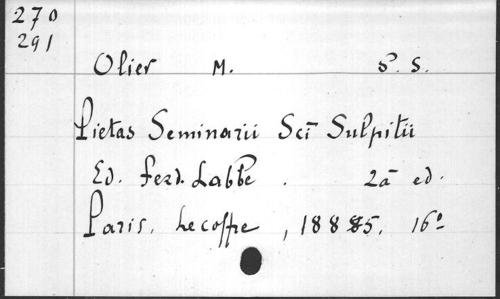 270
291
Olier M. P. S. S.
Pietas Seminarii Sci Sulpitii
Ed. Ferd. Labbe . 2a ed.
Paris, Lecoffre , 1885, 16º